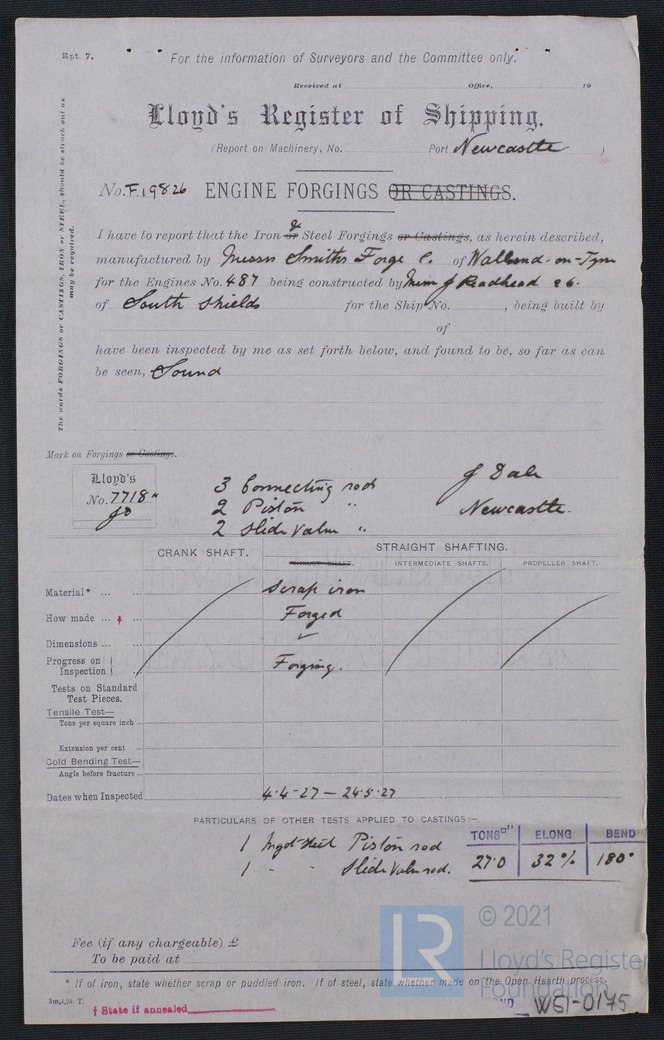 Rpt. 7.
For the information of Surveyors and the Committee only.
Received at Office, 19
Lloyd's Register of Shipping.
(Report on Machinery, No. Port Newcastle )
No. F.19826 ENGINE FORGINGS OR CASTINGS.
I have to report that the Iron or & Steel Forgings or Castings, as herein described,
manufactured by Messrs Smiths Forge C. of Wallsend-on-Tyne
for the Engines No. 487 being constructed by Messrs J Readhead &
of South Shields for the Ship No. , being built by
of
have been inspected by me as set forth below, and found to be, so far as can
be seen, Sound
The words FORGINGS or CASTINGS, IRON or STEEL, should be struck out as
may be required.
Mark on Forgings or Castings.
Lloyd's
No. 7718
JD
3 Connecting rod
2 Piston "
2 Slide Valve "
J Dale
Newcastle.
CRANK SHAFT. STRAIGHT SHAFTING.
THRUST SHAFT. INTERMEDIATE SHAFTS. PROPELLER SHAFT.
Material* ... ... Scrap iron
How made ... † ... Forged
Dimensions ... ... ✓
Progress on Inspection } ... Forging.
Tests on Standard
Test Pieces.
Tensile Test—
Tons per square inch ...
Extension per cent ...
Cold Bending Test—
Angle before fracture ...
Dates when Inspected 4.4.27 — 24.5.27
PARTICULARS OF OTHER TESTS APPLIED TO CASTINGS:—
TONS□" ELONG BEND
1 Ingot Steel Piston rod 27.0 32% 180°
1 - - Slide Valve rod.
Fee (if any chargeable) £
To be paid at
* If of iron, state whether scrap or puddled iron. If of steel, state whether made on the Open Hearth process.
5m,4,24. T.
† State if annealed
LR
© 2021
Lloyd's Register
Foundation
W51-0175